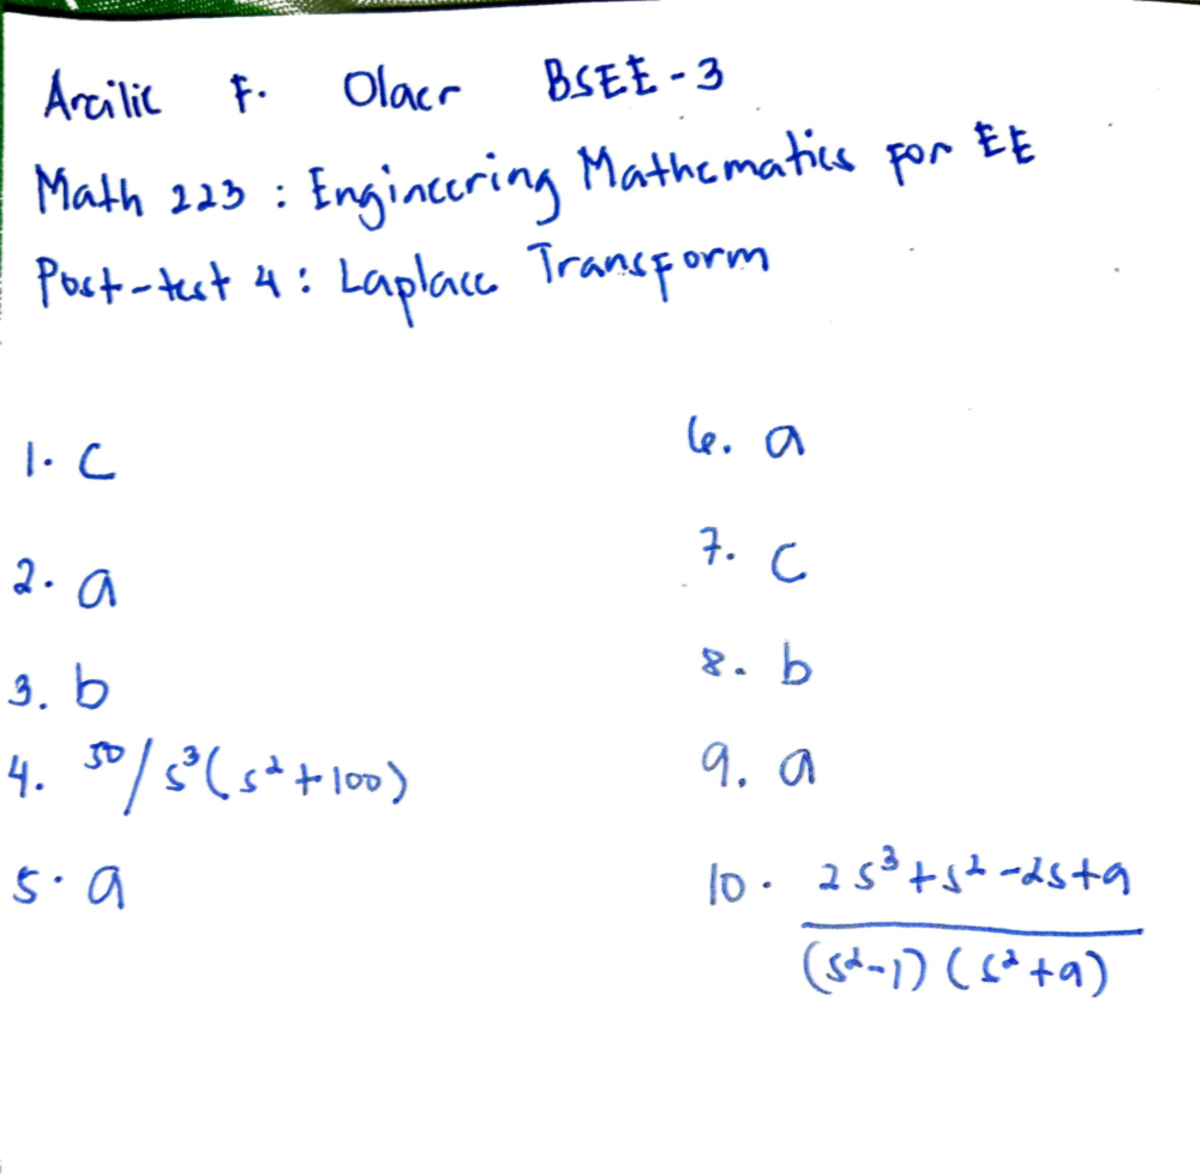 Arcilie F. Olaer BSEE-3
Math 223 : Engineering Mathematics for EE
Post-test 4 : Laplace Transform
1. c
2. a
3. b
4. 50/s³(s²+100)
5. a
6. a
7. c
8. b
9. a
10. 2s³+s²-2s+9
(s²-1)(s²+9)